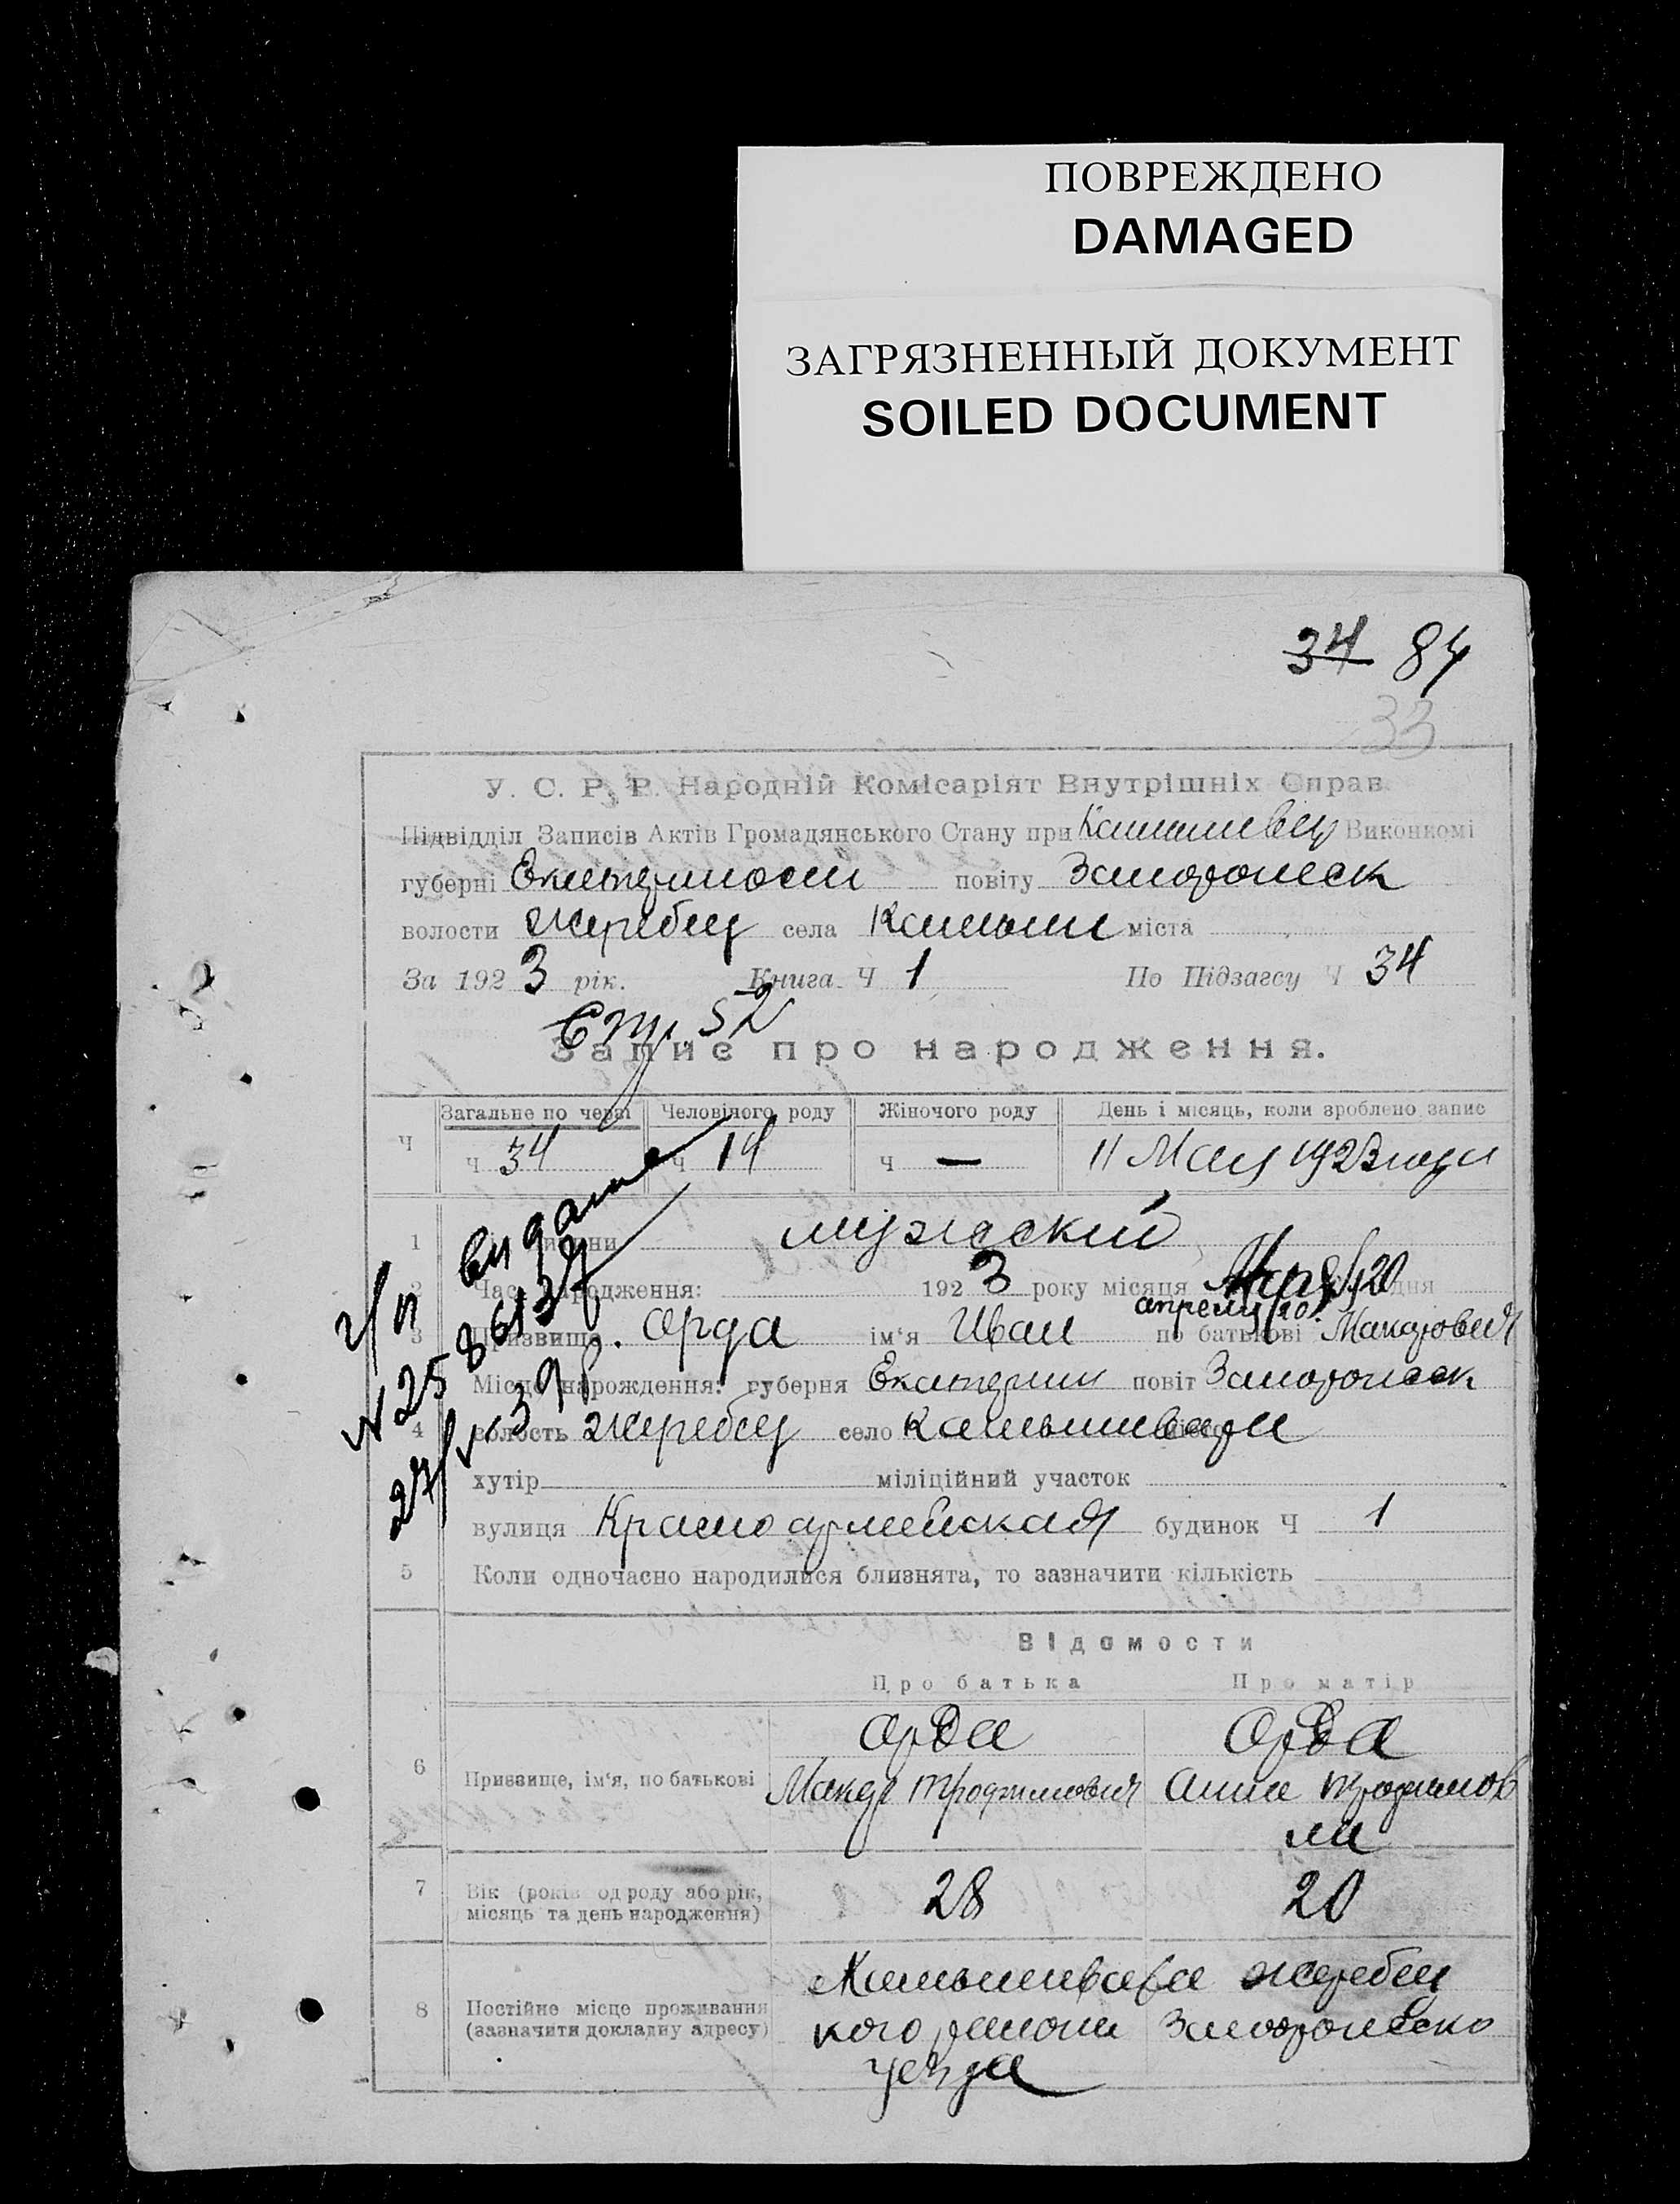 ПОВРЕЖДЕНО
DAMAGED
ЗАГРЯЗНЕННЫЙ ДОКУМЕНТ
SOILED DOCUMENT
34 84
33
У. С. Р. Р. Народній Комісаріят Внутрішніх Справ
Підвідділ Записів Актів Громадянського Стану при Виконкомі
губерні повіту
волости Жеребец села міста
За 1923 рік. Книга Ч 1 По Підзагсу Ч 34
Стр. 52
Запис про народження.
Загальне по черзі Человічого роду Жіночого роду День і місяць, коли зроблено запис
Ч Ч 34 Ч 14 Ч — 11 Мая 1923 года
1 мужской
2 Час народження: 1923 року місяця дня
апреля 20
3 Призвище Орда ім'я Иван по батькові Макарович
Місце нарождення: губерня Екатерин повіт
4 волость Жеребец село Камышеваха
хутір міліційний участок
вулиця Красноармейская будинок Ч 1
5 Коли одночасно народилися близнята, то зазначити кількість
Відомости
Про батька Про матір
Орда Орда
6 Призвище, ім'я, по батькові Макар Трофимович Анна Трофимов
на
7 Вік (років од роду або рік, місяць та день народження) 28 20
8 Постійне місце проживання (зазначити докладну адресу) Камышеваха жеребец
кого района
уезда